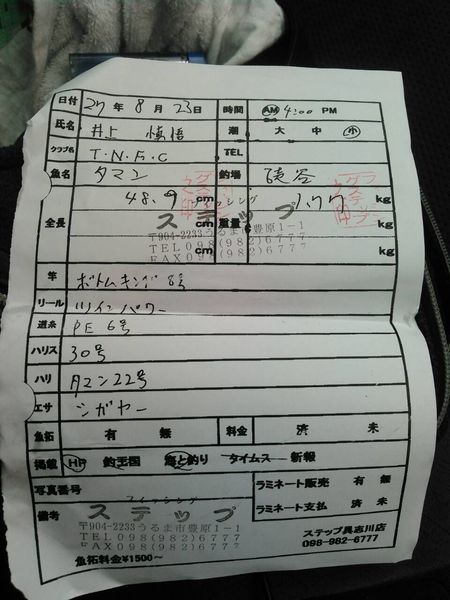 日付 27年 8月 23日 時間 AM 4:00 PM
氏名 井上 慎悟 潮 大 中 小
クラブ名 T.N.F.C TEL
魚名 タマン 釣場
全長 48.9 cm 重量 kg
cm kg
ステップ
〒904-2233うるま市豊原1-1
TEL098(982)6777
FAX098(982)6777
竿 ボトムキング 8号
リール ツインパワー
道糸 PE 6号
ハリス 30号
ハリ タマン22号
エサ シガヤー
魚拓 有 無 料金 済 未
掲載 HP 釣王国 海と釣り タイムス 新報
写真番号 ラミネート販売 有 無
備考 ラミネート支払 済 未
フィッシング
ステップ
〒904-2233うるま市豊原1-1
TEL098(982)6777
FAX098(982)6777
ステップ具志川店
098-982-6777
魚拓料金¥1500~